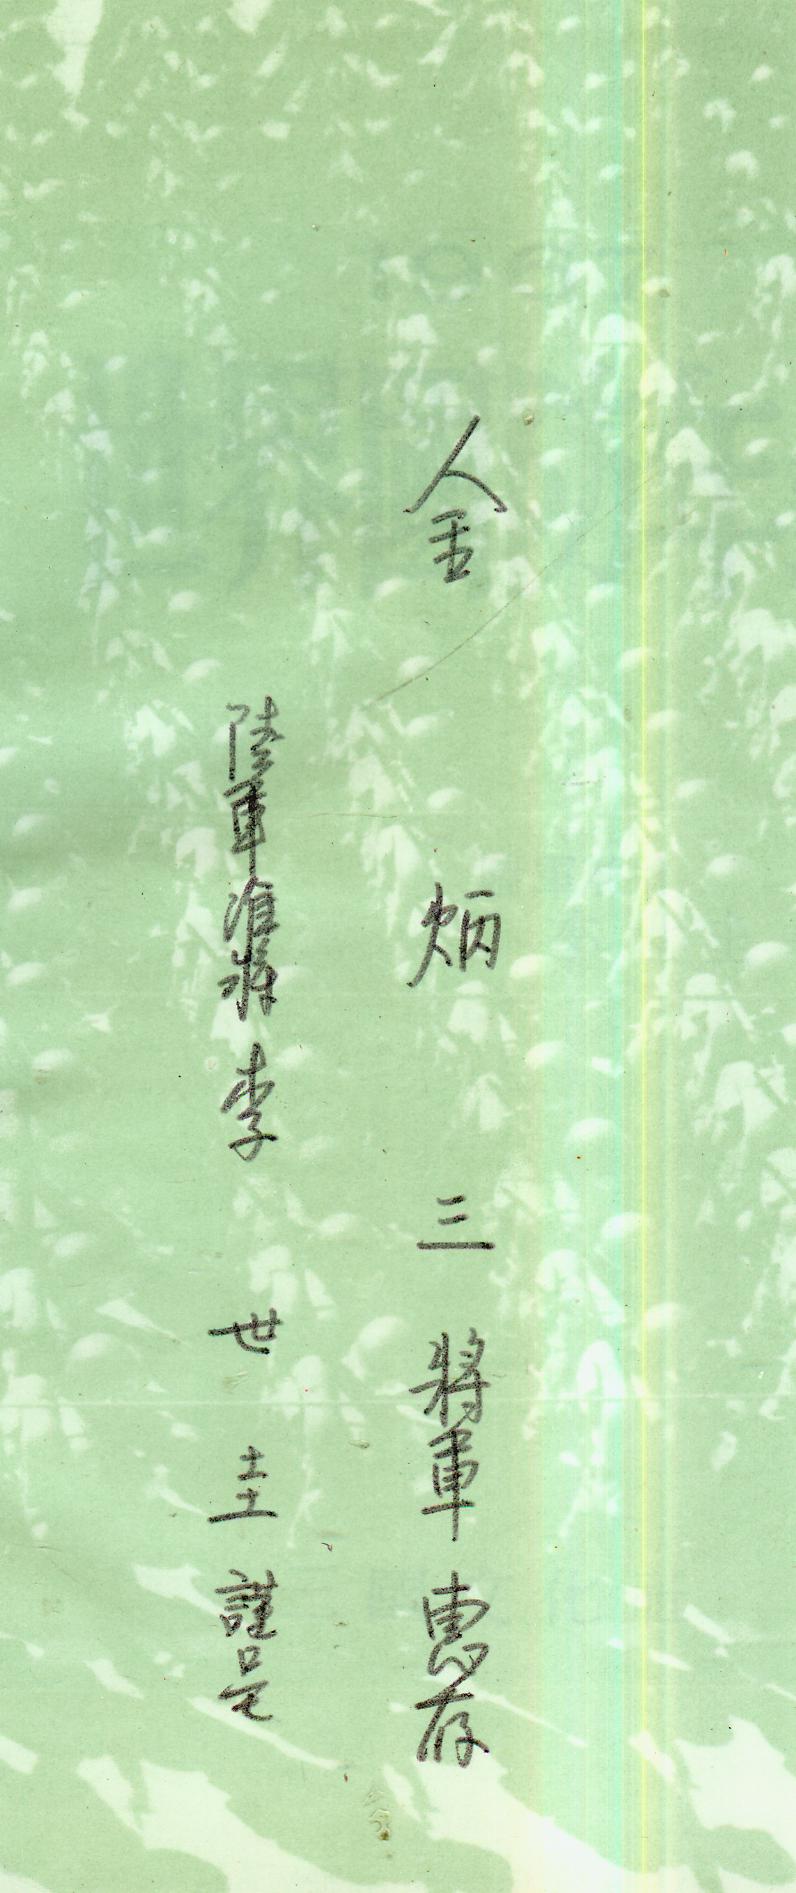 金 炳 三 將軍 惠存
陸軍准將 李 世 圭 謹呈